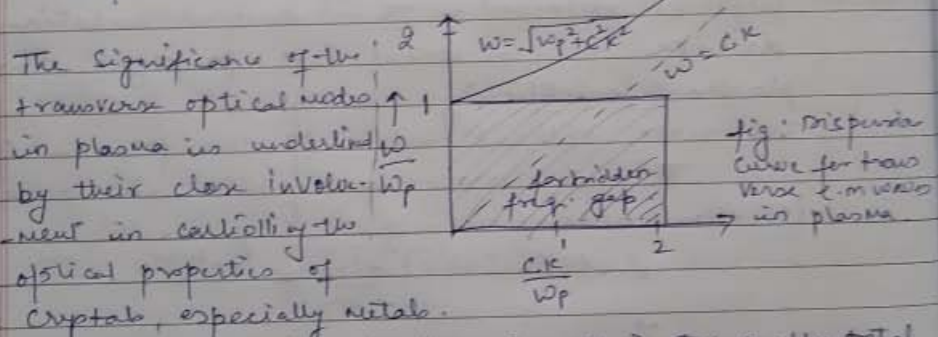 The Significance of the
transverse optical modes
in plasma is underlined
by their close involve-
-ment in controlling the
optical properties of
crystals, especially metals.
2
1
ω/ωp
ω=√ωp²+c²k²
ω=ck
forbidden
frq. gap
1 2
ck/ωp
fig: Dispersion
Curve for trans
verse e.m waves
in plasma